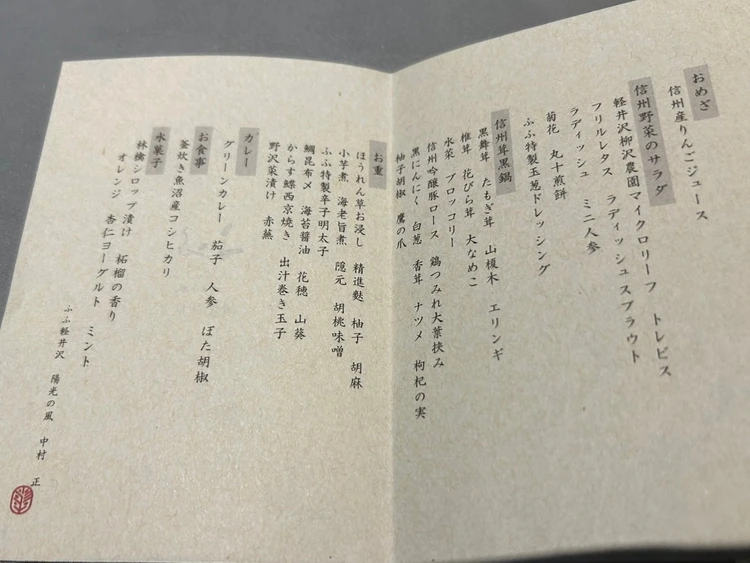 おめざ
信州産りんごジュース
信州野菜のサラダ
軽井沢柳沢農園マイクロリーフ　トレビス
フリルレタス　ラディッシュスプラウト
ラディッシュ　ミニ人参
菊花　丸十煎餅
ふふ特製玉葱ドレッシング
信州茸黒鍋
黒舞茸　たもぎ茸　山榎木　エリンギ
椎茸　花びら茸　大なめこ
水菜　ブロッコリー
信州吟醸豚ロース　鶏つみれ大葉挟み
黒にんにく　白葱　香茸　ナツメ　枸杞の実
柚子胡椒　鷹の爪
お重
ほうれん草お浸し　精進麩　柚子　胡麻
小芋煮　海老旨煮　隠元　胡桃味噌
ふふ特製辛子明太子
鯛昆布〆　海苔醤油　花穂　山葵
からす鰈西京焼き　出汁巻き玉子
野沢菜漬け　赤蕪
カレー
グリーンカレー　茄子　人参　ぼた胡椒
お食事
釜炊き魚沼産コシヒカリ
水菓子
林檎シロップ漬け　柘榴の香り
オレンジ　杏仁ヨーグルト　ミント
ふふ軽井沢　陽光の風　中村　正